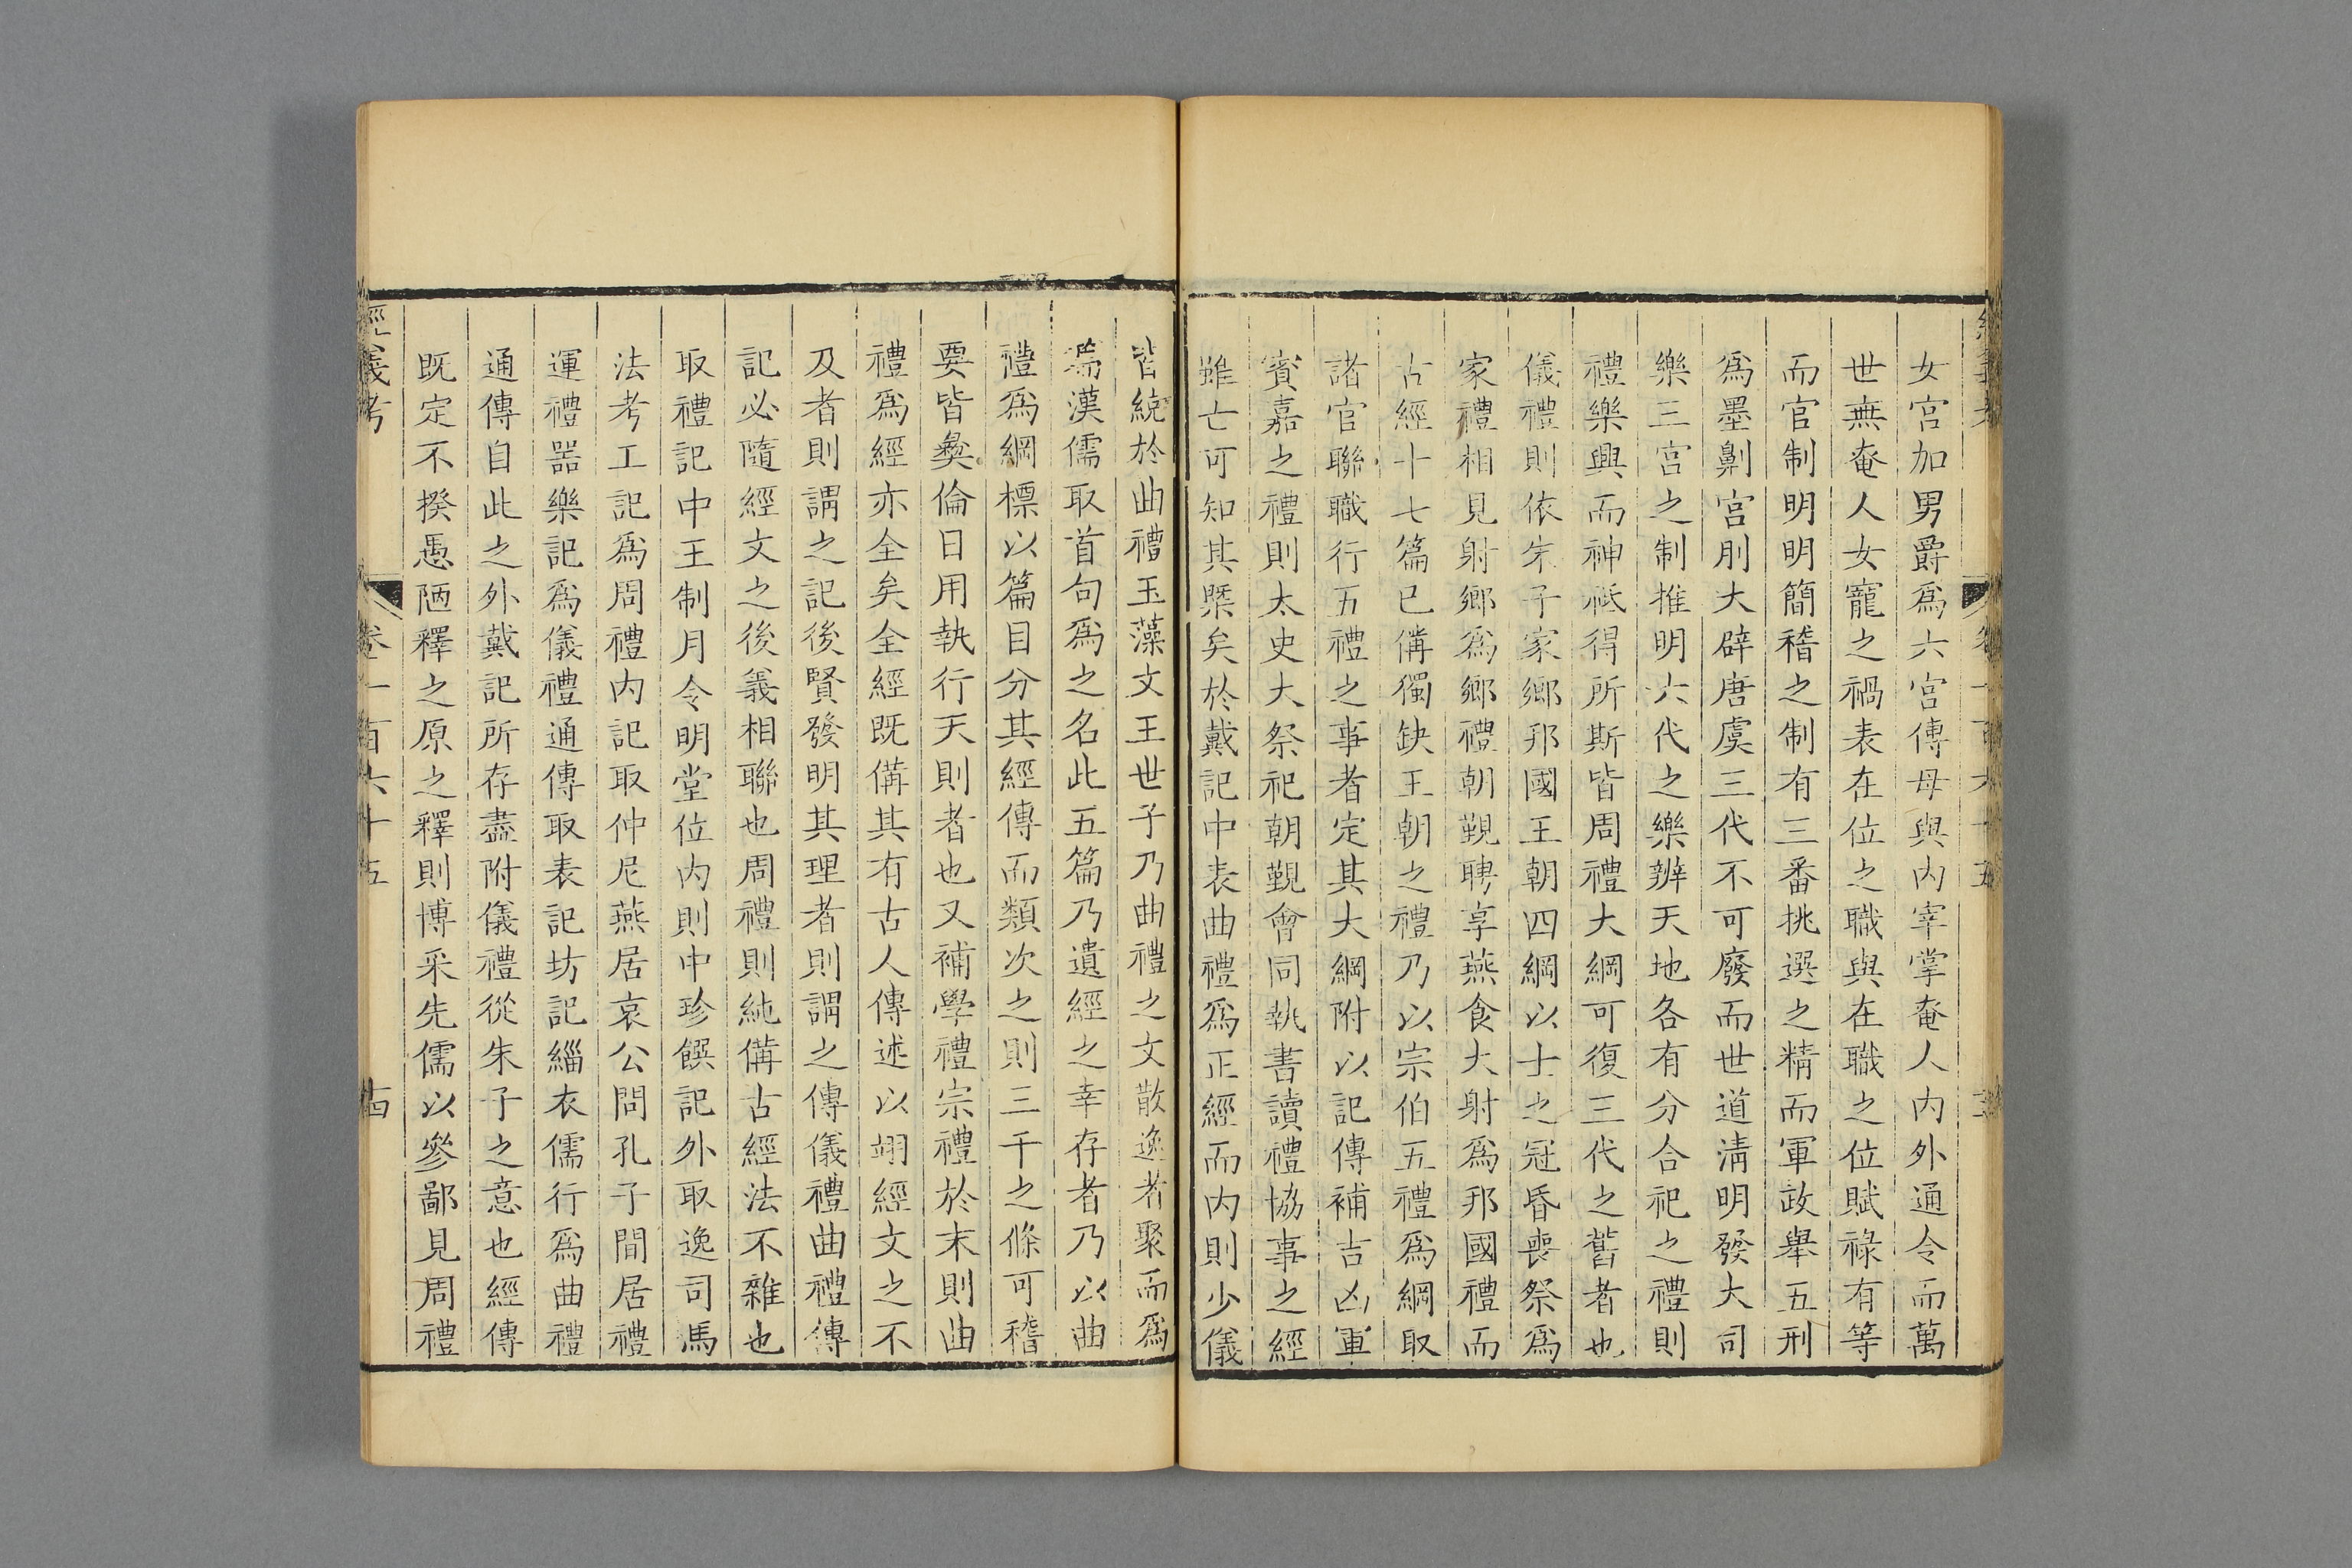 女宮加男爵爲六宮傅母與內宰掌奄人內外通令而萬
世無奄人女寵之禍表在位之職與在職之位賦祿有等
而官制明明簡稽之制有三番挑選之精而軍政舉五刑
爲墨劓宮刖大辟唐虞三代不可廢而世道淸明發大司
樂三宮之制推明六代之樂辨天地各有分合祀之禮則
禮樂興而神祗得所斯皆周禮大綱可復三代之舊者也
儀禮則依朱子家鄉邦國王朝四綱以士之冠昏喪祭爲
家禮相見射鄉爲鄉禮朝覲聘享燕食大射爲邦國禮而
古經十七篇已備獨缺王朝之禮乃以宗伯五禮爲綱取
諸官聯職行五禮之事者定其大綱附以記傳補吉凶軍
賓嘉之禮則太史大祭祀朝覲會同執書讀禮協事之經
雖亡可知其槩矣於戴記中表曲禮爲正經而內則少儀
皆統於曲禮玉藻文王世子乃曲禮之文散逸者聚而爲
耑漢儒取首句爲之名此五篇乃遺經之幸存者乃以曲
禮爲綱標以篇目分其經傳而類次之則三千之條可稽
要皆彝倫日用執行天則者也又補學禮宗禮於末則曲
禮爲經亦全矣全經旣備其有古人傳述以翊經文之不
及者則謂之記後賢發明其理者則謂之傳儀禮曲禮傳
記必隨經文之後義相聯也周禮則純備古經法不雜也
取禮記中王制月令明堂位內則中珍饌記外取逸司馬
法考工記爲周禮內記取仲尼燕居哀公問孔子閒居禮
運禮器樂記爲儀禮通傳取表記坊記緇衣儒行爲曲禮
通傳自此之外戴記所存盡附儀禮從朱子之意也經傳
旣定不揆愚陋釋之原之釋則博采先儒以參鄙見周禮
經義考
卷一百六十五
十四